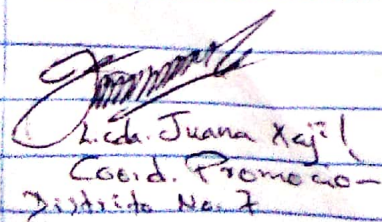 Lcda. Juana Xajil
Coord. Promocion
Distrito No. 7